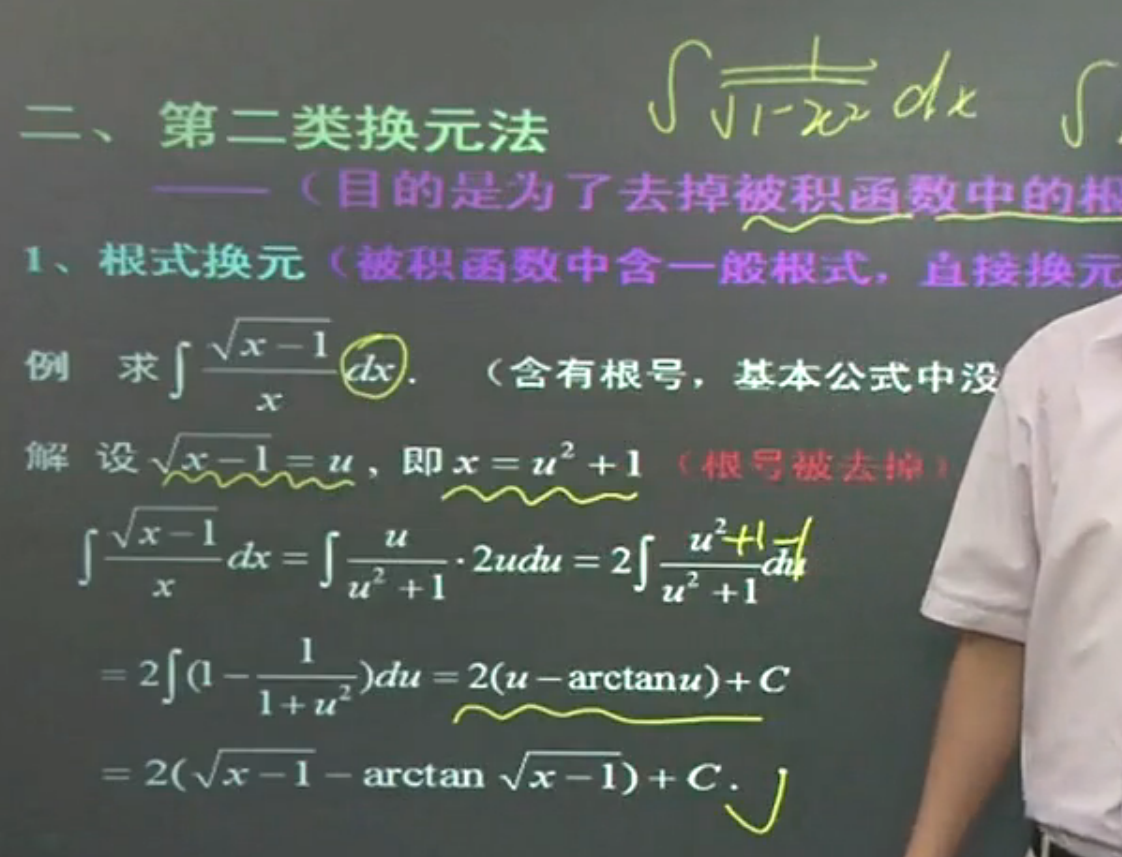 ∫ 1/√(1-x²) dx ∫
二、第二类换元法
——（目的是为了去掉被积函数中的根
1、根式换元（被积函数中含一般根式，直接换元
例 求∫ √(x-1)/x dx. （含有根号，基本公式中没
解 设√(x-1) = u，即 x = u² + 1 （根号被去掉）
∫ √(x-1)/x dx = ∫ u/(u²+1) · 2udu = 2∫ (u²+1-1)/(u²+1) du
= 2∫(1 - 1/(1+u²))du = 2(u - arctanu) + C
= 2(√(x-1) - arctan √(x-1)) + C.